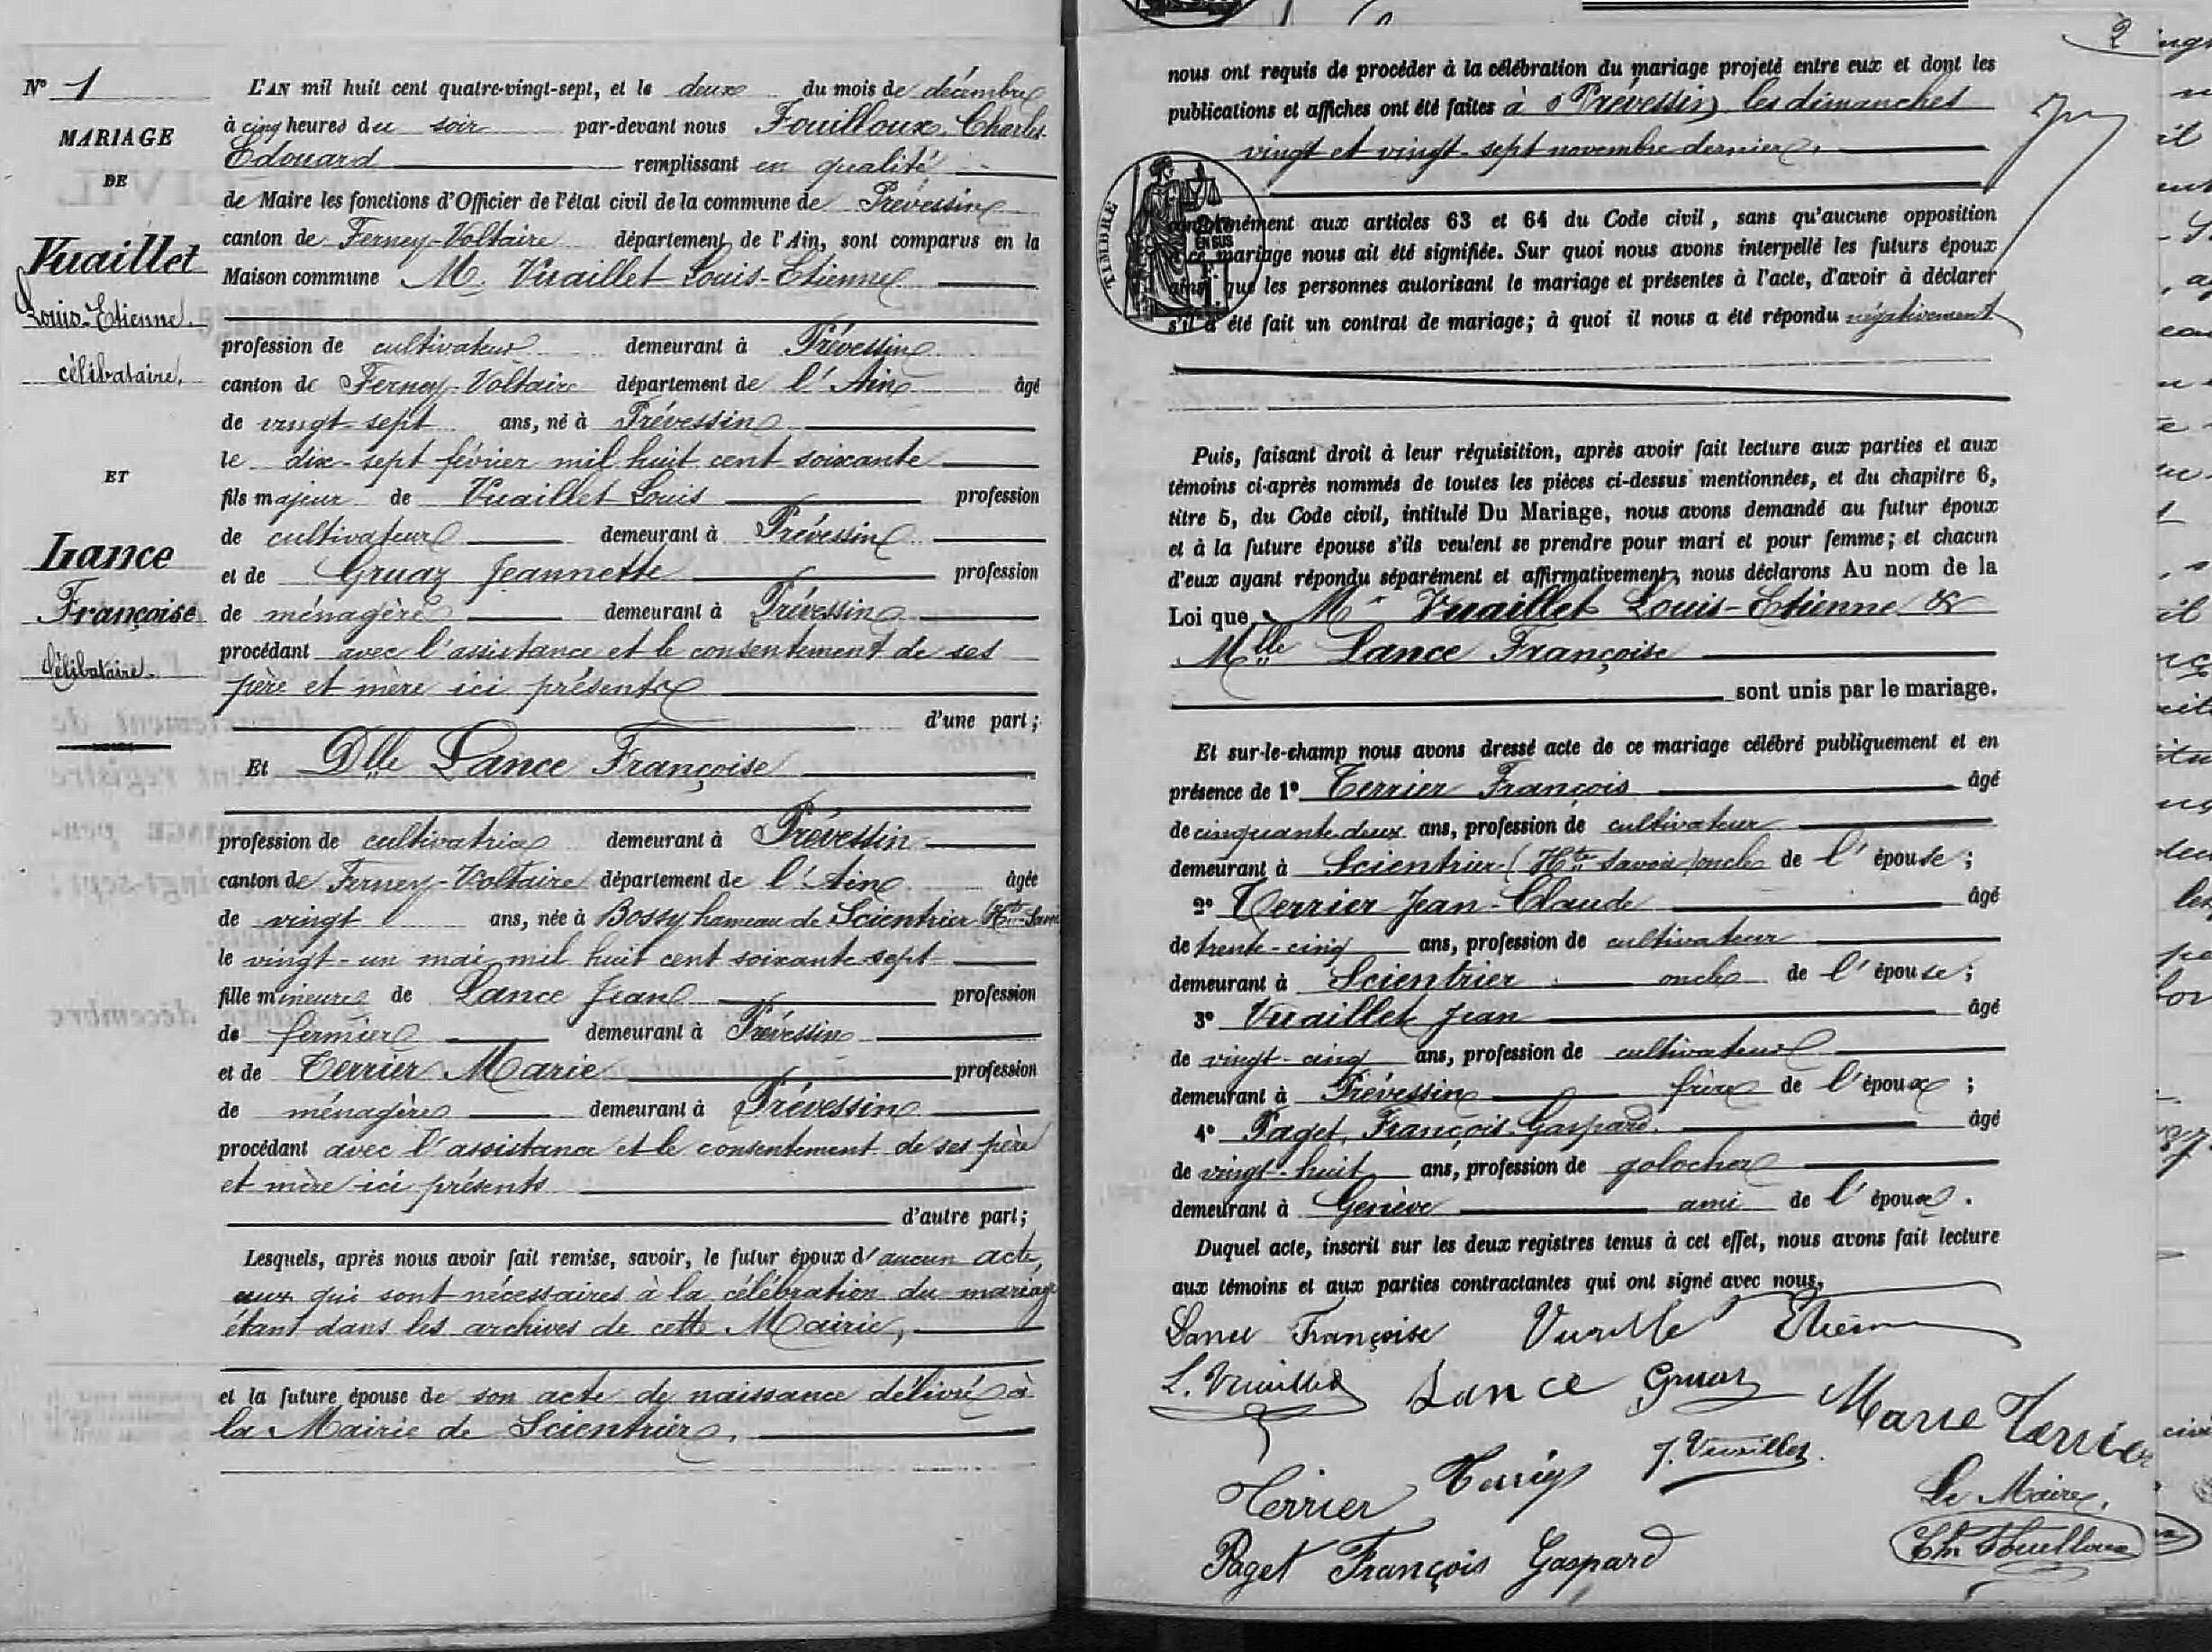 N° 1
MARIAGE
DE
Vuaillet
Louis-Etienne.
célibataire.
ET
Lance
Françoise
célibataire.
L'AN mil huit cent quatre-vingt-sept, et le deux du mois de décembre
à cinq heures du soir par-devant nous Fouilloux Charles-
Edouard remplissant en qualité
de Maire les fonctions d'Officier de l'état civil de la commune de Prévessin
canton de Ferney-Voltaire département de l'Ain, sont comparus en la
Maison commune M. Vuaillet Louis-Etienne
profession de cultivateur demeurant à Prévessin
canton de Ferney-Voltaire département de l'Ain âgé
de vingt-sept ans, né à Prévessin
le dix-sept février mil huit cent soixante
fils majeur de Vuaillet Louis profession
de cultivateur demeurant à Prévessin
et de Gruaz Jeannette profession
de ménagère demeurant à Prévessin
procédant avec l'assistance et le consentement de ses
père et mère ici présents
d'une part;
Et Dlle Lance Françoise
profession de cultivatrice demeurant à Prévessin
canton de Ferney-Voltaire département de l'Ain âgée
de vingt ans, née à Bossy hameau de Scientrier (Hte-Savoie
le vingt-un mai mil huit cent soixante sept
fille mineure de Lance Jean profession
de fermier demeurant à Prévessin
et de Terrier Marie profession
de ménagère demeurant à Prévessin
procédant avec l'assistance et le consentement de ses père
et mère ici présents
d'autre part;
Lesquels, après nous avoir fait remise, savoir, le futur époux d'aucun acte,
ceux qui sont nécessaires à la célébration du mariage
étant dans les archives de cette Mairie,
et la future épouse de son acte de naissance délivré à
la Mairie de Scientrier.
2
nous ont requis de procéder à la célébration du mariage projeté entre eux et dont les
publications et affiches ont été faites à Prévessin les dimanches
vingt et vingt-sept novembre dernier.
TIMBRE
EN SUS
conformément aux articles 63 et 64 du Code civil, sans qu'aucune opposition
à ce mariage nous ait été signifiée. Sur quoi nous avons interpellé les futurs époux
ainsi que les personnes autorisant le mariage et présentes à l'acte, d'avoir à déclarer
s'il a été fait un contrat de mariage; à quoi il nous a été répondu négativement
Puis, faisant droit à leur réquisition, après avoir fait lecture aux parties et aux
témoins ci-après nommés de toutes les pièces ci-dessus mentionnées, et du chapitre 6,
titre 5, du Code civil, intitulé Du Mariage, nous avons demandé au futur époux
et à la future épouse s'ils veulent se prendre pour mari et pour femme; et chacun
d'eux ayant répondu séparément et affirmativement, nous déclarons Au nom de la
Loi que Mr Vuaillet Louis-Etienne &
Mlle Lance Françoise
sont unis par le mariage.
Et sur-le-champ nous avons dressé acte de ce mariage célébré publiquement et en
présence de 1° Terrier François âgé
de cinquante-deux ans, profession de cultivateur
demeurant à Scientrier (Hte Savoie) oncle de l'épouse;
2° Terrier Jean-Claude âgé
de trente-cinq ans, profession de cultivateur
demeurant à Scientrier oncle de l'épouse;
3° Vuaillet Jean âgé
de vingt-cinq ans, profession de cultivateur
demeurant à Prévessin frère de l'époux;
4° Paget, François Gaspard. âgé
de vingt-huit ans, profession de galocher
demeurant à Genève ami de l'époux.
Duquel acte, inscrit sur les deux registres tenus à cet effet, nous avons fait lecture
aux témoins et aux parties contractantes qui ont signé avec nous.
Lance Françoise Etienne
L. Vuaillet Lance Gruaz Marie Terrier
Terrier J. Vuaillet
Le Maire,
Paget François Gaspard Ch Fouilloux